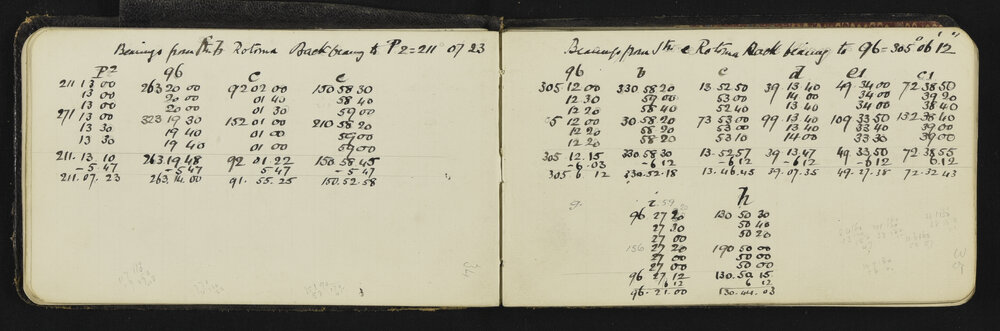 Bearings from Stn b Rotoma Back bearing to P2 = 211° 07 23
P2 96 c e
211 13 00 263 20 00 92 02 00 150 58 30
13 00 20 00 01 40 58 40
13 00 20 00 01 30 59 00
271 13 00 323 19 30 152 01 00 210 58 20
13 30 19 40 01 00 59 00
13 30 19 40 01 00 59 00
211. 13. 10 263. 19. 48 92 01 22 150. 58. 45
- 5 47 - 5 47 5 47 5 47
211. 07. 23 263. 14. 00 91. 55. 25 150. 52. 58
34
Bearings from Stn e Rotoma Back bearing to 96 = 305° 06' 12"
96 b c d e1 c1
305 12 00 330 58 20 13 52 50 39 13 40 49 34 00 72 38 50
12 30 59 00 53 00 14 00 34 00 39 20
12 20 58 40 52 40 13 40 34 00 38 40
5 12 00 30 58 20 73 53 00 99 13 40 109 33 50 132 38 40
12 20 58 20 53 00 13 40 33 40 39 00
12 20 58 20 53 10 14 00 33 30 39 00
305 12. 15 330. 58 30 13. 52. 57 39 13. 47 49. 33. 50 72. 38 55
- 6. 03 - 6 12 - 6 12 - 6 12 - 6 12 6. 12
305 6 12 330. 52. 18 13. 46. 45 39. 07. 35 49. 27. 38 72. 32. 43
g i h
96 27 20 130 50 30
27 30 50 40
27 00 50 20
156 27 20 190 50 00
27 00 50 00
27 00 50 00
96 27 12 130. 50. 15
6 12 6 12
96. 21. 00 130. 44. 03